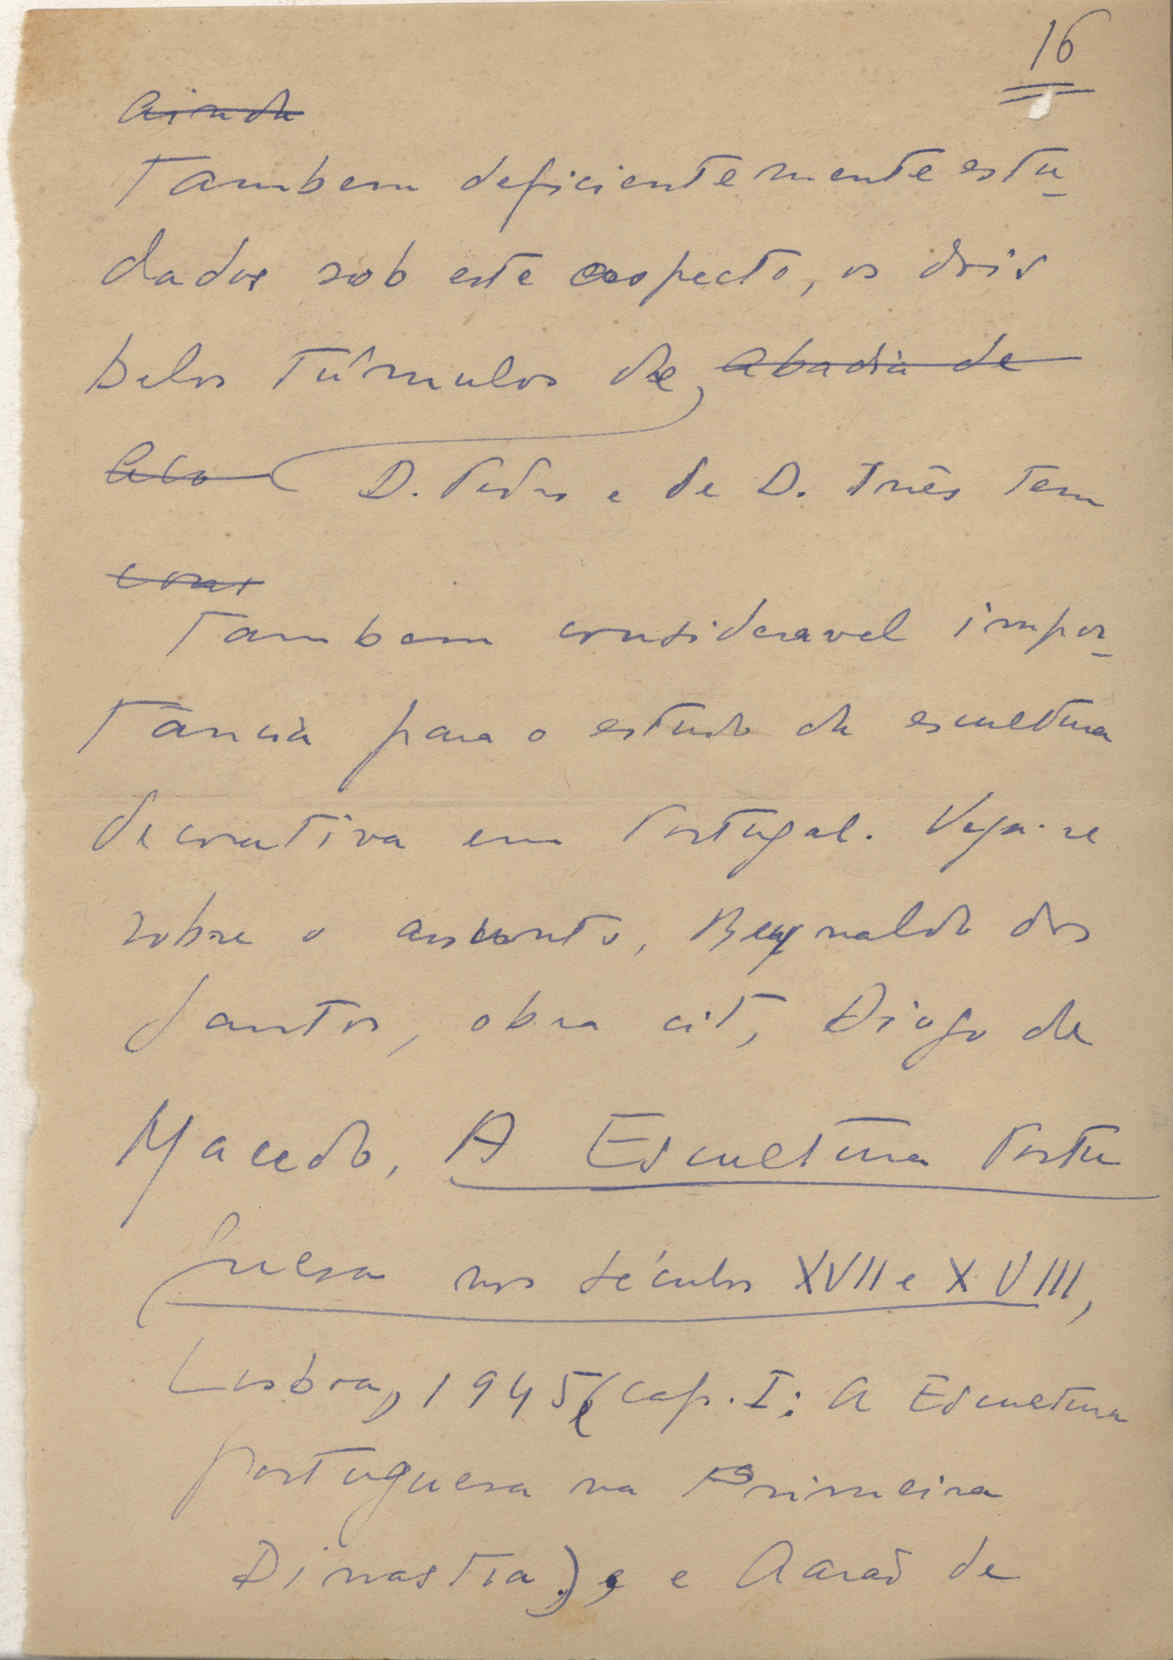 16
Ainda
Tambem deficientemente estu-
dados sob este aspecto, os dois
belos túmulos de, abadia de
Alco D. Pedro e de D. Inês tem
cons
tambem consideravel impor-
tância para o estudo da escultura
decorativa em Portugal. Veja-se
sobre o assunto, Reynaldo dos
Santos, obra cit, Diogo de
Macedo, A Escultura Portu
guesa nos séculos XVII e XVIII,
Lisboa, 1945, (cap. I: A Escultura
portuguesa na Primeira
Dinastia), e Aarão de